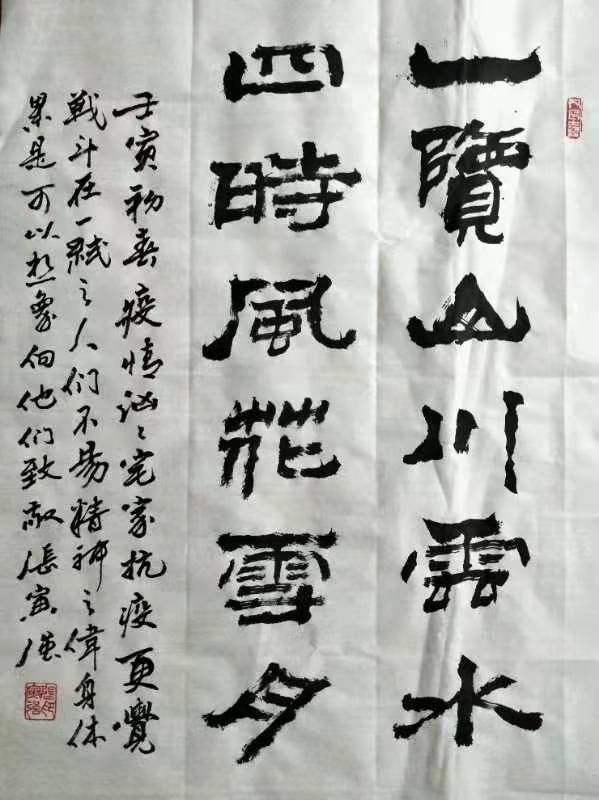 一覽山川雲水
四時風花雪月
壬寅初春疫情汹〻宅家抗疫更覺
戦斗在一线之人们不易精神之偉身体
累是可以想象向他们致敬張寅强